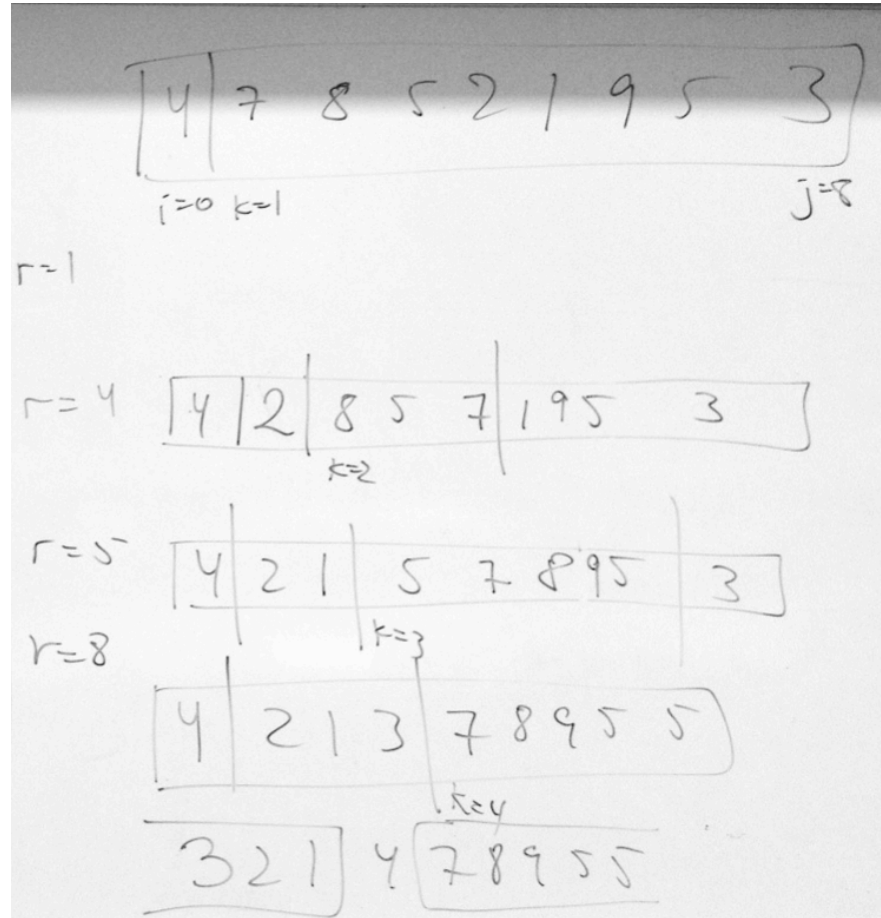 4 7 8 5 2 1 9 5 3
i=0 k=1 j=8
r=1
r=4 4 2 8 5 7 1 9 5 3
k=2
r=5 4 2 1 5 7 8 9 5 3
r=8 k=3
4 2 1 3 7 8 9 5 5
k=4
3 2 1 4 7 8 9 5 5